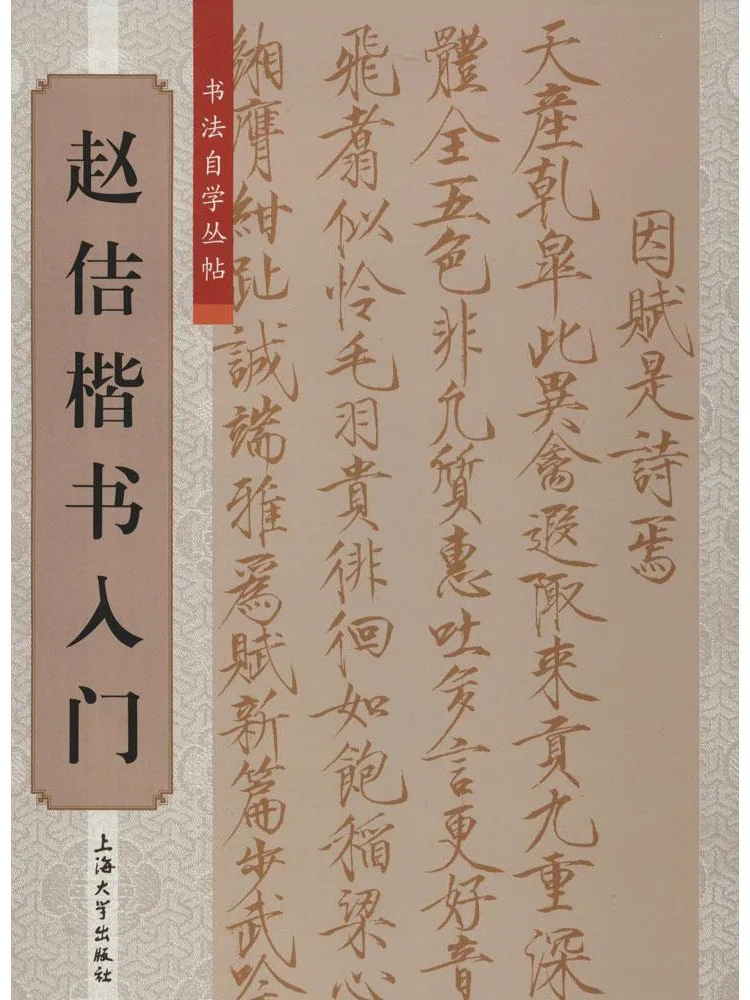 赵佶楷书入门
书法自学丛帖
上海大学出版社
因赋是詩焉
天産乾皐此異禽遐陬来貢九重深
體全五色非凡質惠吐多言更好音
飛翥似怜毛羽貴徘徊如飽稲粱心
緗膺紺趾誠端雅爲賦新篇步武吟